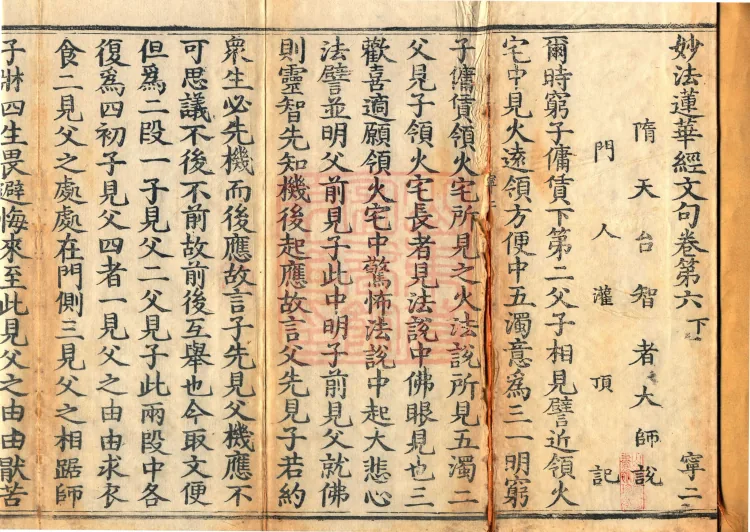 妙法蓮華經文句卷第六下 寧二
隋天台智者大師說
門人灌頂記
爾時窮子傭賃下第二父子相見譬近領火
宅中見火遠領方便中五濁意為三一明窮
子傭賃領火宅所見之火法說所見五濁二
父見子領火宅長者見法說中佛眼見也三
歡喜適願領火宅中驚怖法說中起大悲心
法譬並明父前見子此中明子前見父就佛
則靈智先知機後起應故言父先見子若約
衆生必先機而後應故言子先見父機應不
可思議不後不前故前後互舉也今取文便
但為二段一子見父二父見子此兩段中各
復為四初子見父四者一見父之由由求衣
食二見父之處處在門側三見父之相踞師
子牀四生畏避悔來至此見父之由由猒苦